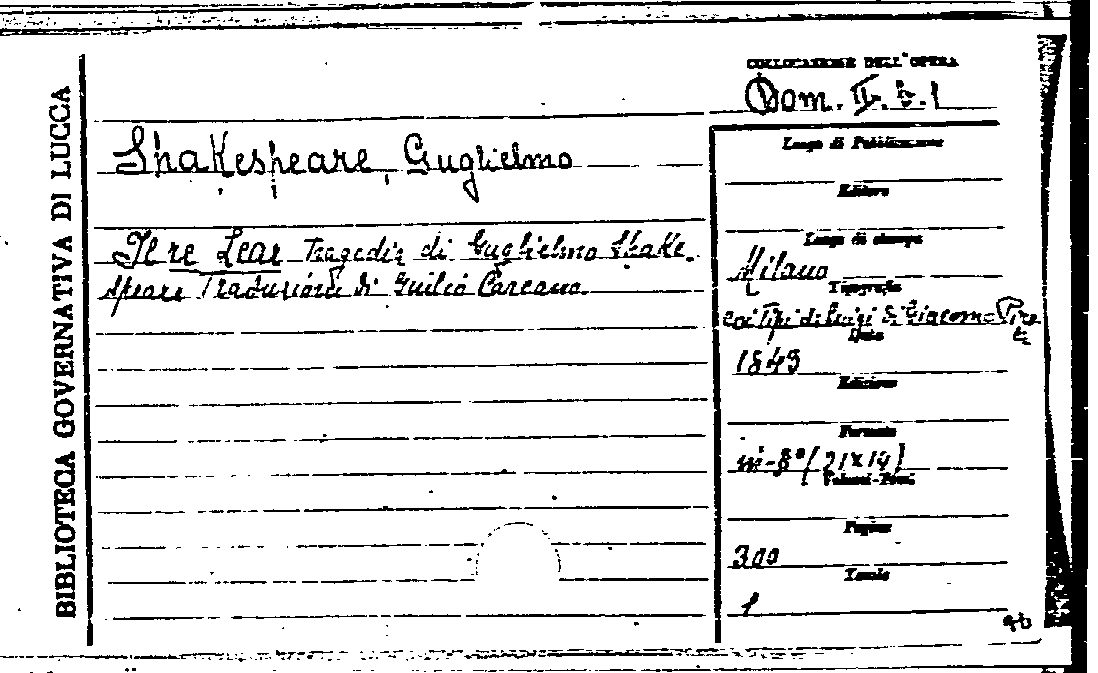 BIBLIOTECA GOVERNATIVA DI LUCCA
COLLOCAZIONE DELL'OPERA
Dom. II. b. 1
Shakespeare, Guglielmo
Il re Lear Tragedia di Guglielmo Shake-
speare Traduzione di Guilio Carcano.
Luogo di Pubblicazione
Editore
Luogo di stampa
Milano
Tipografia
coi Tipi di Luigi di Giacomo Piro
la
Data
1843
Edizione
Formato
in-8° (21x14)
Volumi-Tomi
Pagine
300
Tavole
1